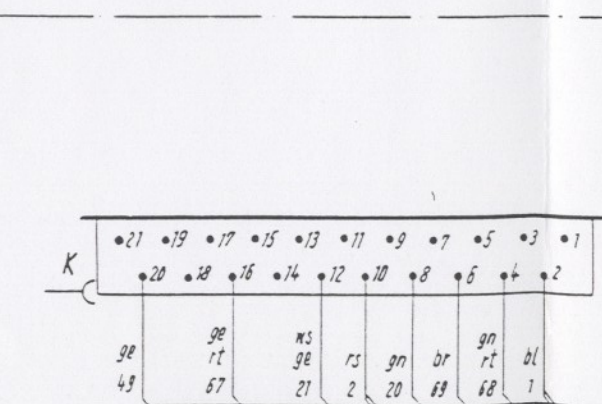 21 19 17 15 13 11 9 7 5 3 1
K
20 18 16 14 12 10 8 6 4 2
ge 49
ge rt 67
ws ge 21
rs 2
gn 20
br 69
gn rt 68
bl 1